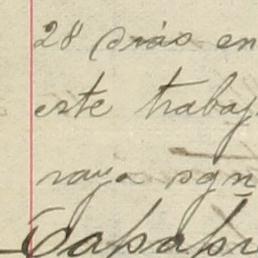 28 dias en
este trabaj
raya sgn